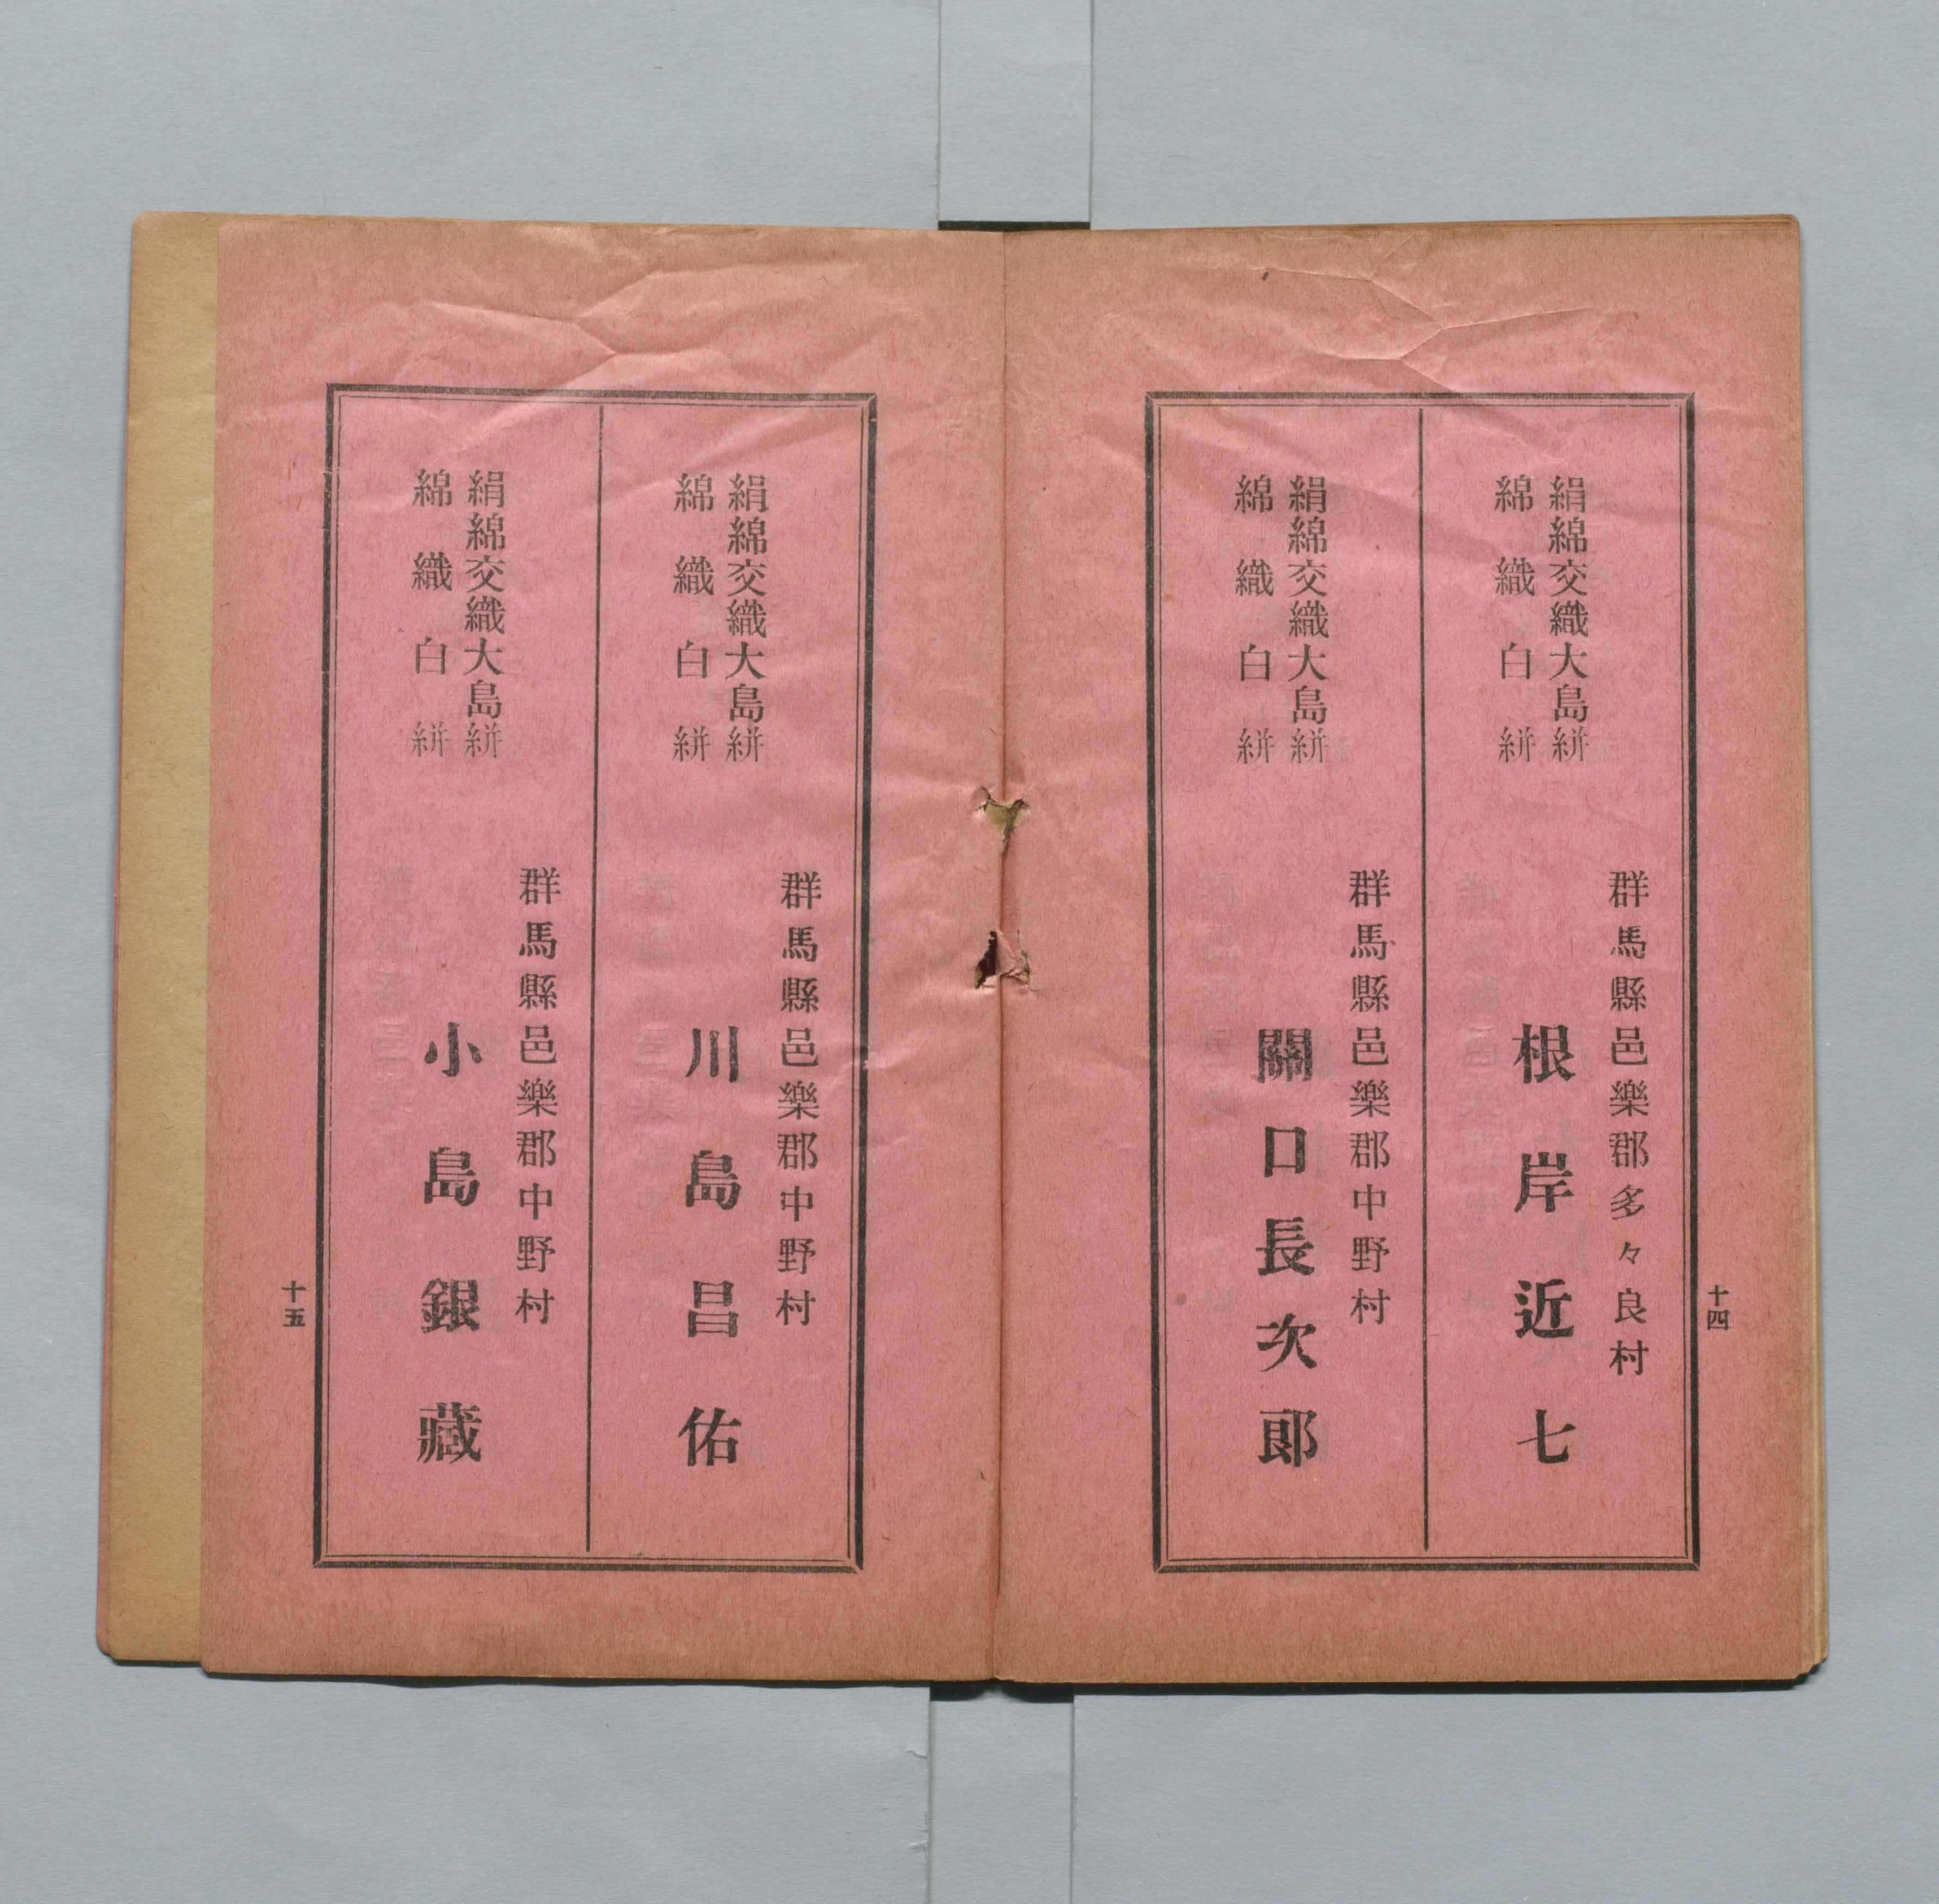 十四
絹綿交織大島絣
綿織白絣
群馬縣邑樂郡多々良村
根岸近七
絹綿交織大島絣
綿織白絣
群馬縣邑樂郡中野村
關口長次郎
絹綿交織大島絣
綿織白絣
群馬縣邑樂郡中野村
川島昌佑
絹綿交織大島絣
綿織白絣
群馬縣邑樂郡中野村
小島銀藏
十五